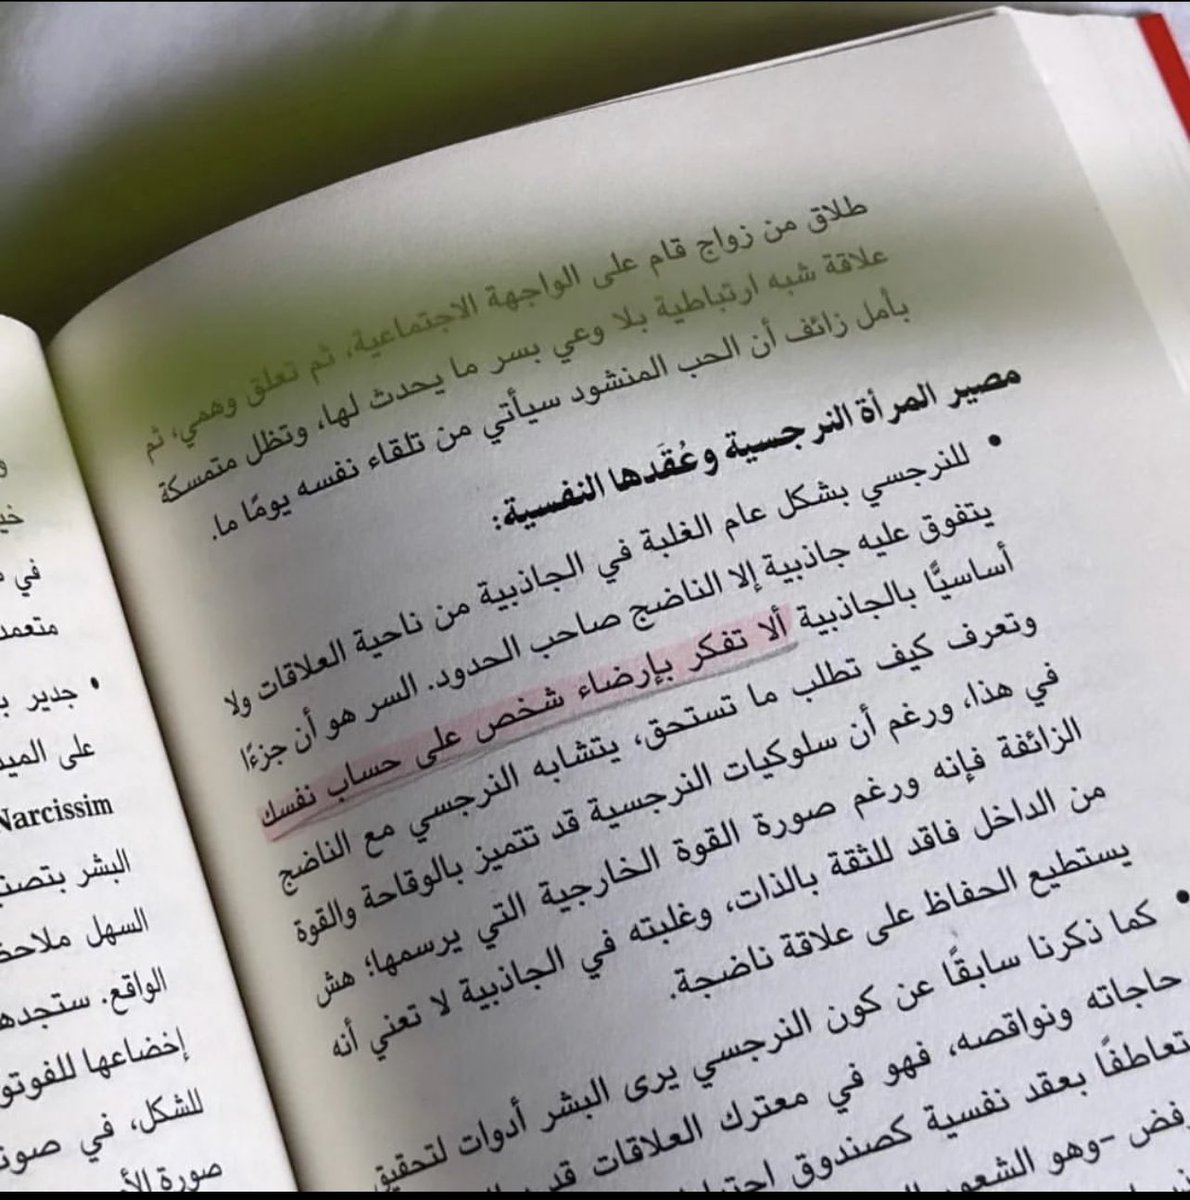 طلاق من زواج قام على الواجهة الاجتماعية، ثم تعلق وهمي، ثم
علاقة شبه ارتباطية بلا وعي بسر ما يحدث لها، وتظل متمسكة
بأمل زائف أن الحب المنشود سيأتي من تلقاء نفسه يومًا ما.
مصير المرأة النرجسية وعُقَدها النفسية:
• للنرجسي بشكل عام الغلبة في الجاذبية من ناحية العلاقات ولا
يتفوق عليه جاذبية إلا الناضج صاحب الحدود. السر هو أن جزءًا
أساسيًّا بالجاذبية ألا تفكر بإرضاء شخص على حساب نفسك
وتعرف كيف تطلب ما تستحق، يتشابه النرجسي مع الناضج
في هذا، ورغم أن سلوكيات النرجسية قد تتميز بالوقاحة والقوة
الزائفة فإنه ورغم صورة القوة الخارجية التي يرسمها؛ هش
من الداخل فاقد للثقة بالذات، وغلبته في الجاذبية لا تعني أنه
يستطيع الحفاظ على علاقة ناضجة.
• كما ذكرنا سابقًا عن كون النرجسي يرى البشر أدوات لتحقيق
حاجاته ونواقصه، فهو في معترك العلاقات
تعاطفًا بعقد نفسية كصندوق
-وهو
في
متعمد
• جدير
على
Narcissim
البشر
السهل
الواقع. ستجدها
إخضاعها
للشكل، في
صورة